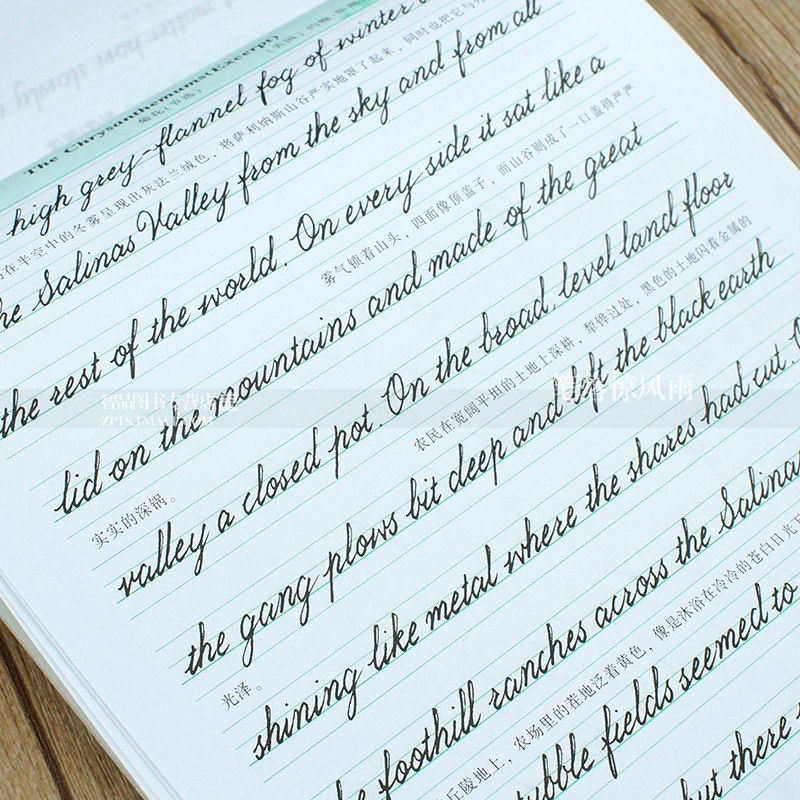 matter how slowly
The Chrysanthemums(Excerpt)
菊花(节选)
high grey-flannel fog of winter
在半空中的冬雾呈现出灰法兰绒色，将萨利纳斯山谷严实地罩了起来，同时也把它与
he Salinas Valley from the sky and from all
the rest of the world. On every side it sat like a
雾气锁着山头，四面像顶盖子，而山谷则成了一口盖得严严
lid on the mountains and made of the great
实实的深锅。
valley a closed pot. On the broad, level land floor
农民在宽阔平坦的土地上深耕，犁铧过处，黑色的土地闪着金属的
the gang plows bit deep and left the black earth
光泽。
shining like metal where the shares had cut.
foothill ranches across the Salinas
丘陵地上，农场里的茬地泛着黄色，像是沐浴在冷冷的苍白日光
tubble fields seemed to
but there
智品图书专营店
ZPTS.TMALL.COM
笔落惊风雨